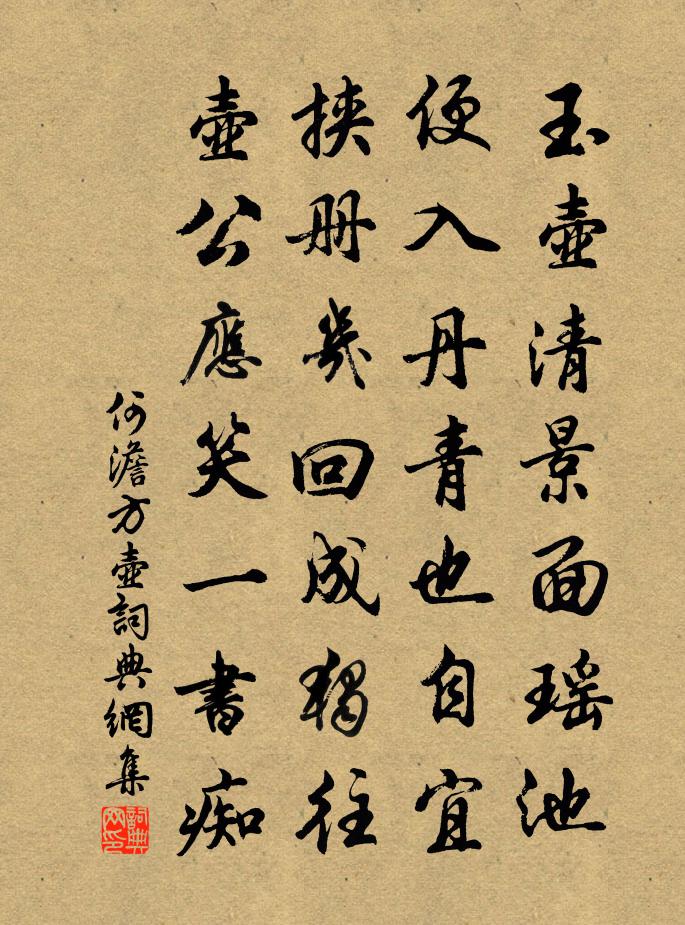 玉壺清景面瑶池
便入丹青也自宜
挾册幾回成獨往
壺公應笑一書痴
何澹方壺詞典網集
詞典網印